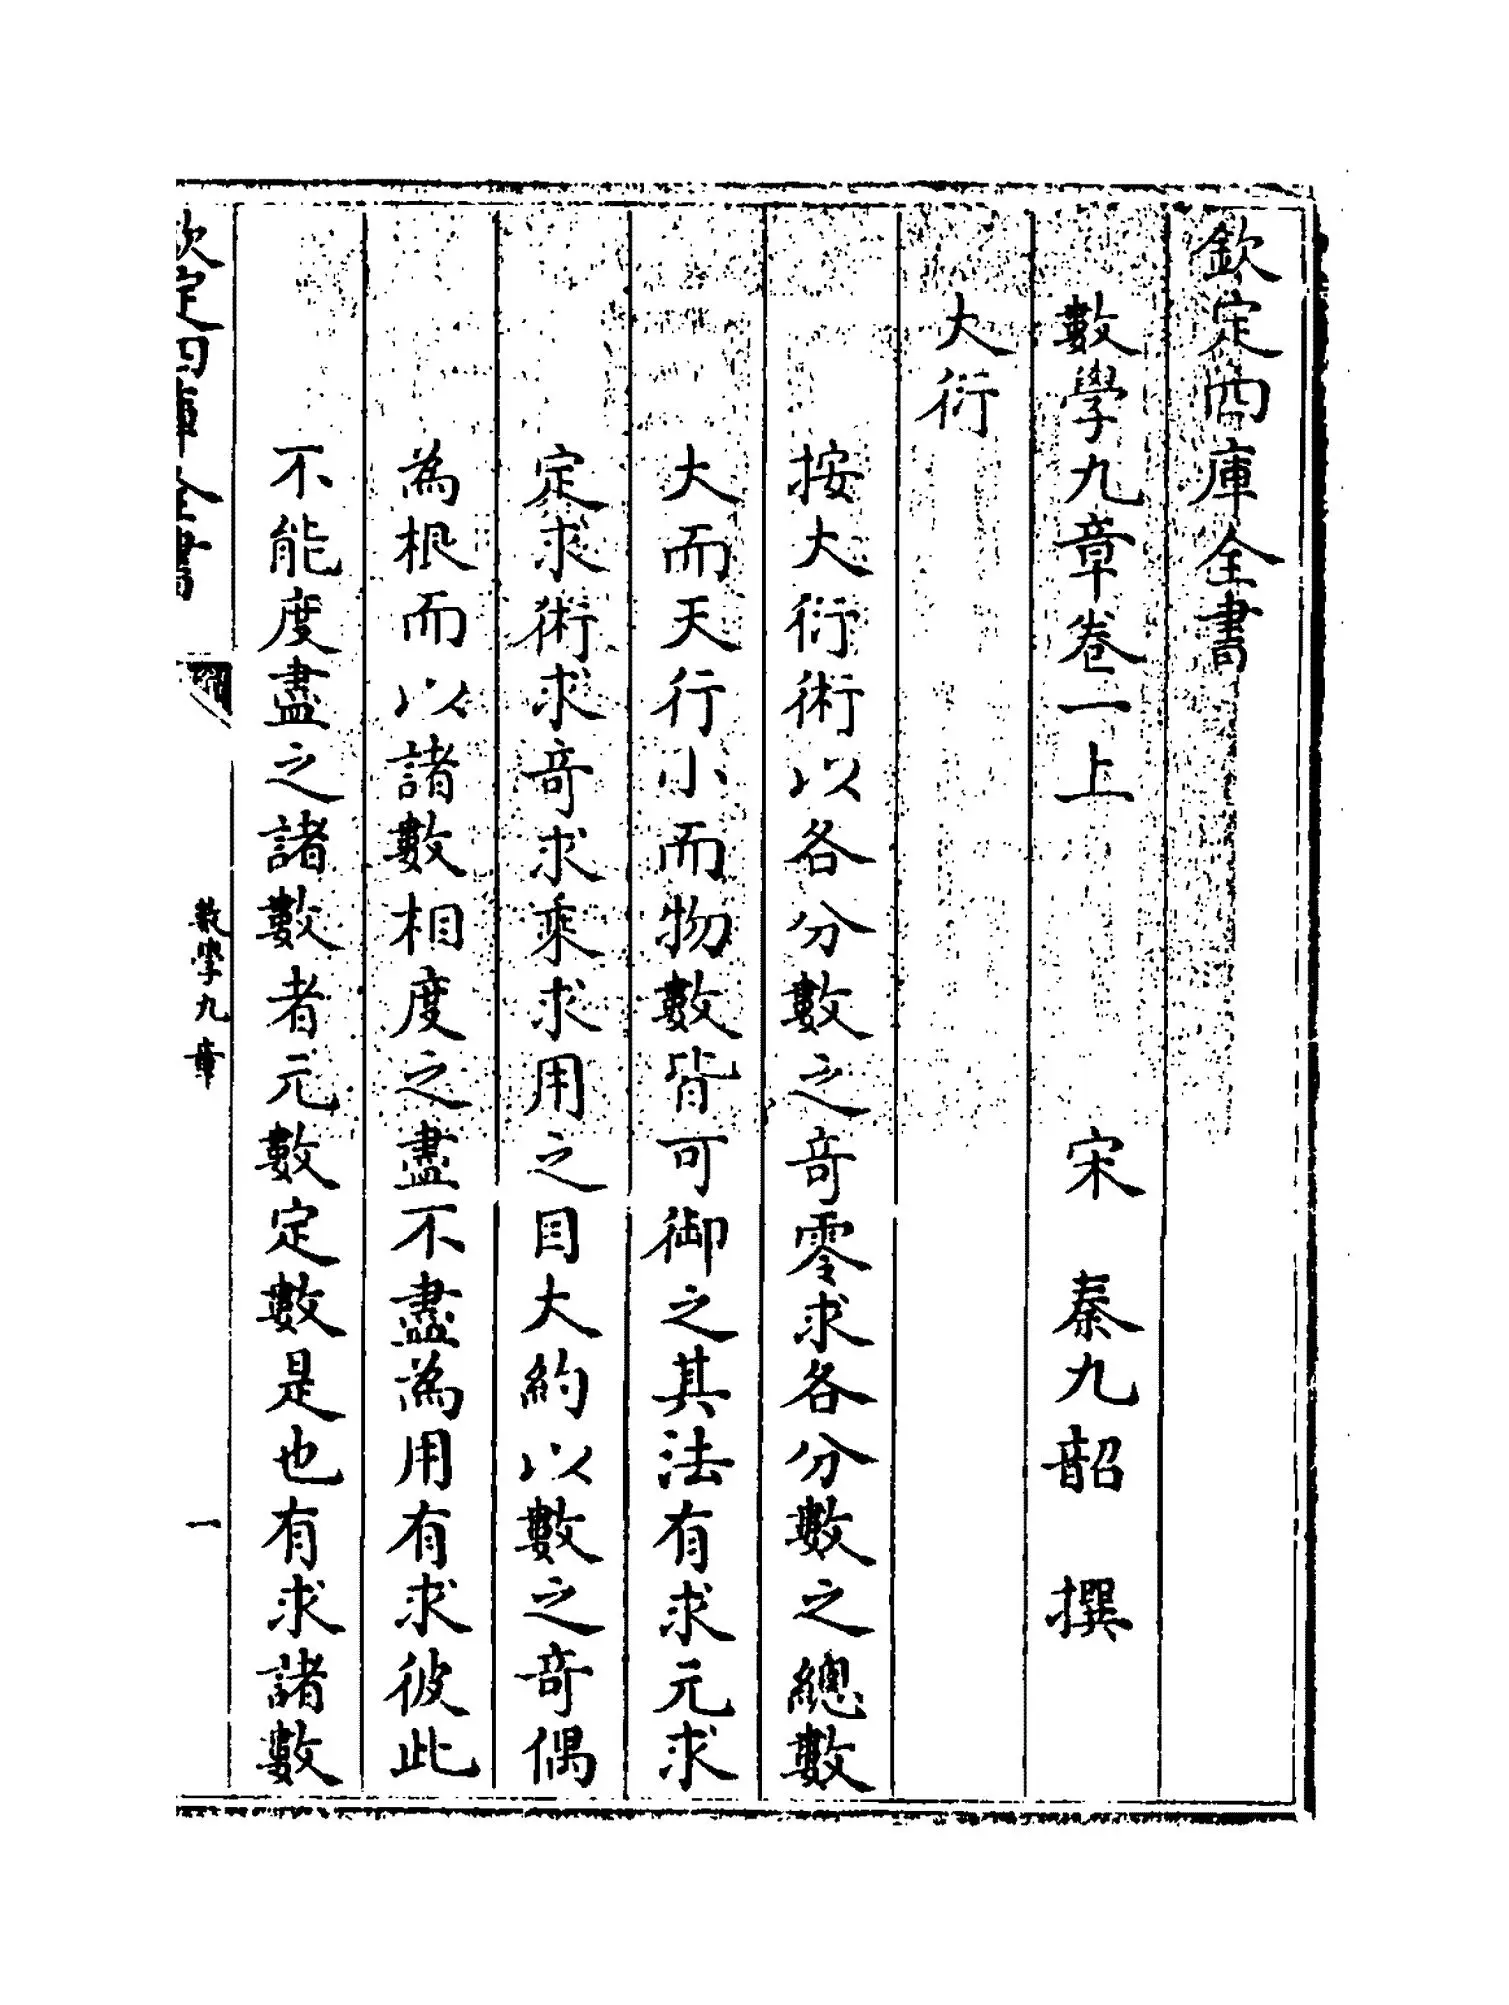 欽定四庫全書
數學九章卷一上 宋 秦九韶 撰
大衍
按大衍術以各分數之竒零求各分數之總數
大而天行小而物數皆可御之其法有求元求
定求術求竒求乘求用之目大約以數之竒偶
為根而以諸數相度之盡不盡為用有求彼此
不能度盡之諸數者元數定數是也有求諸數
欽定四庫全書
數學九章
一